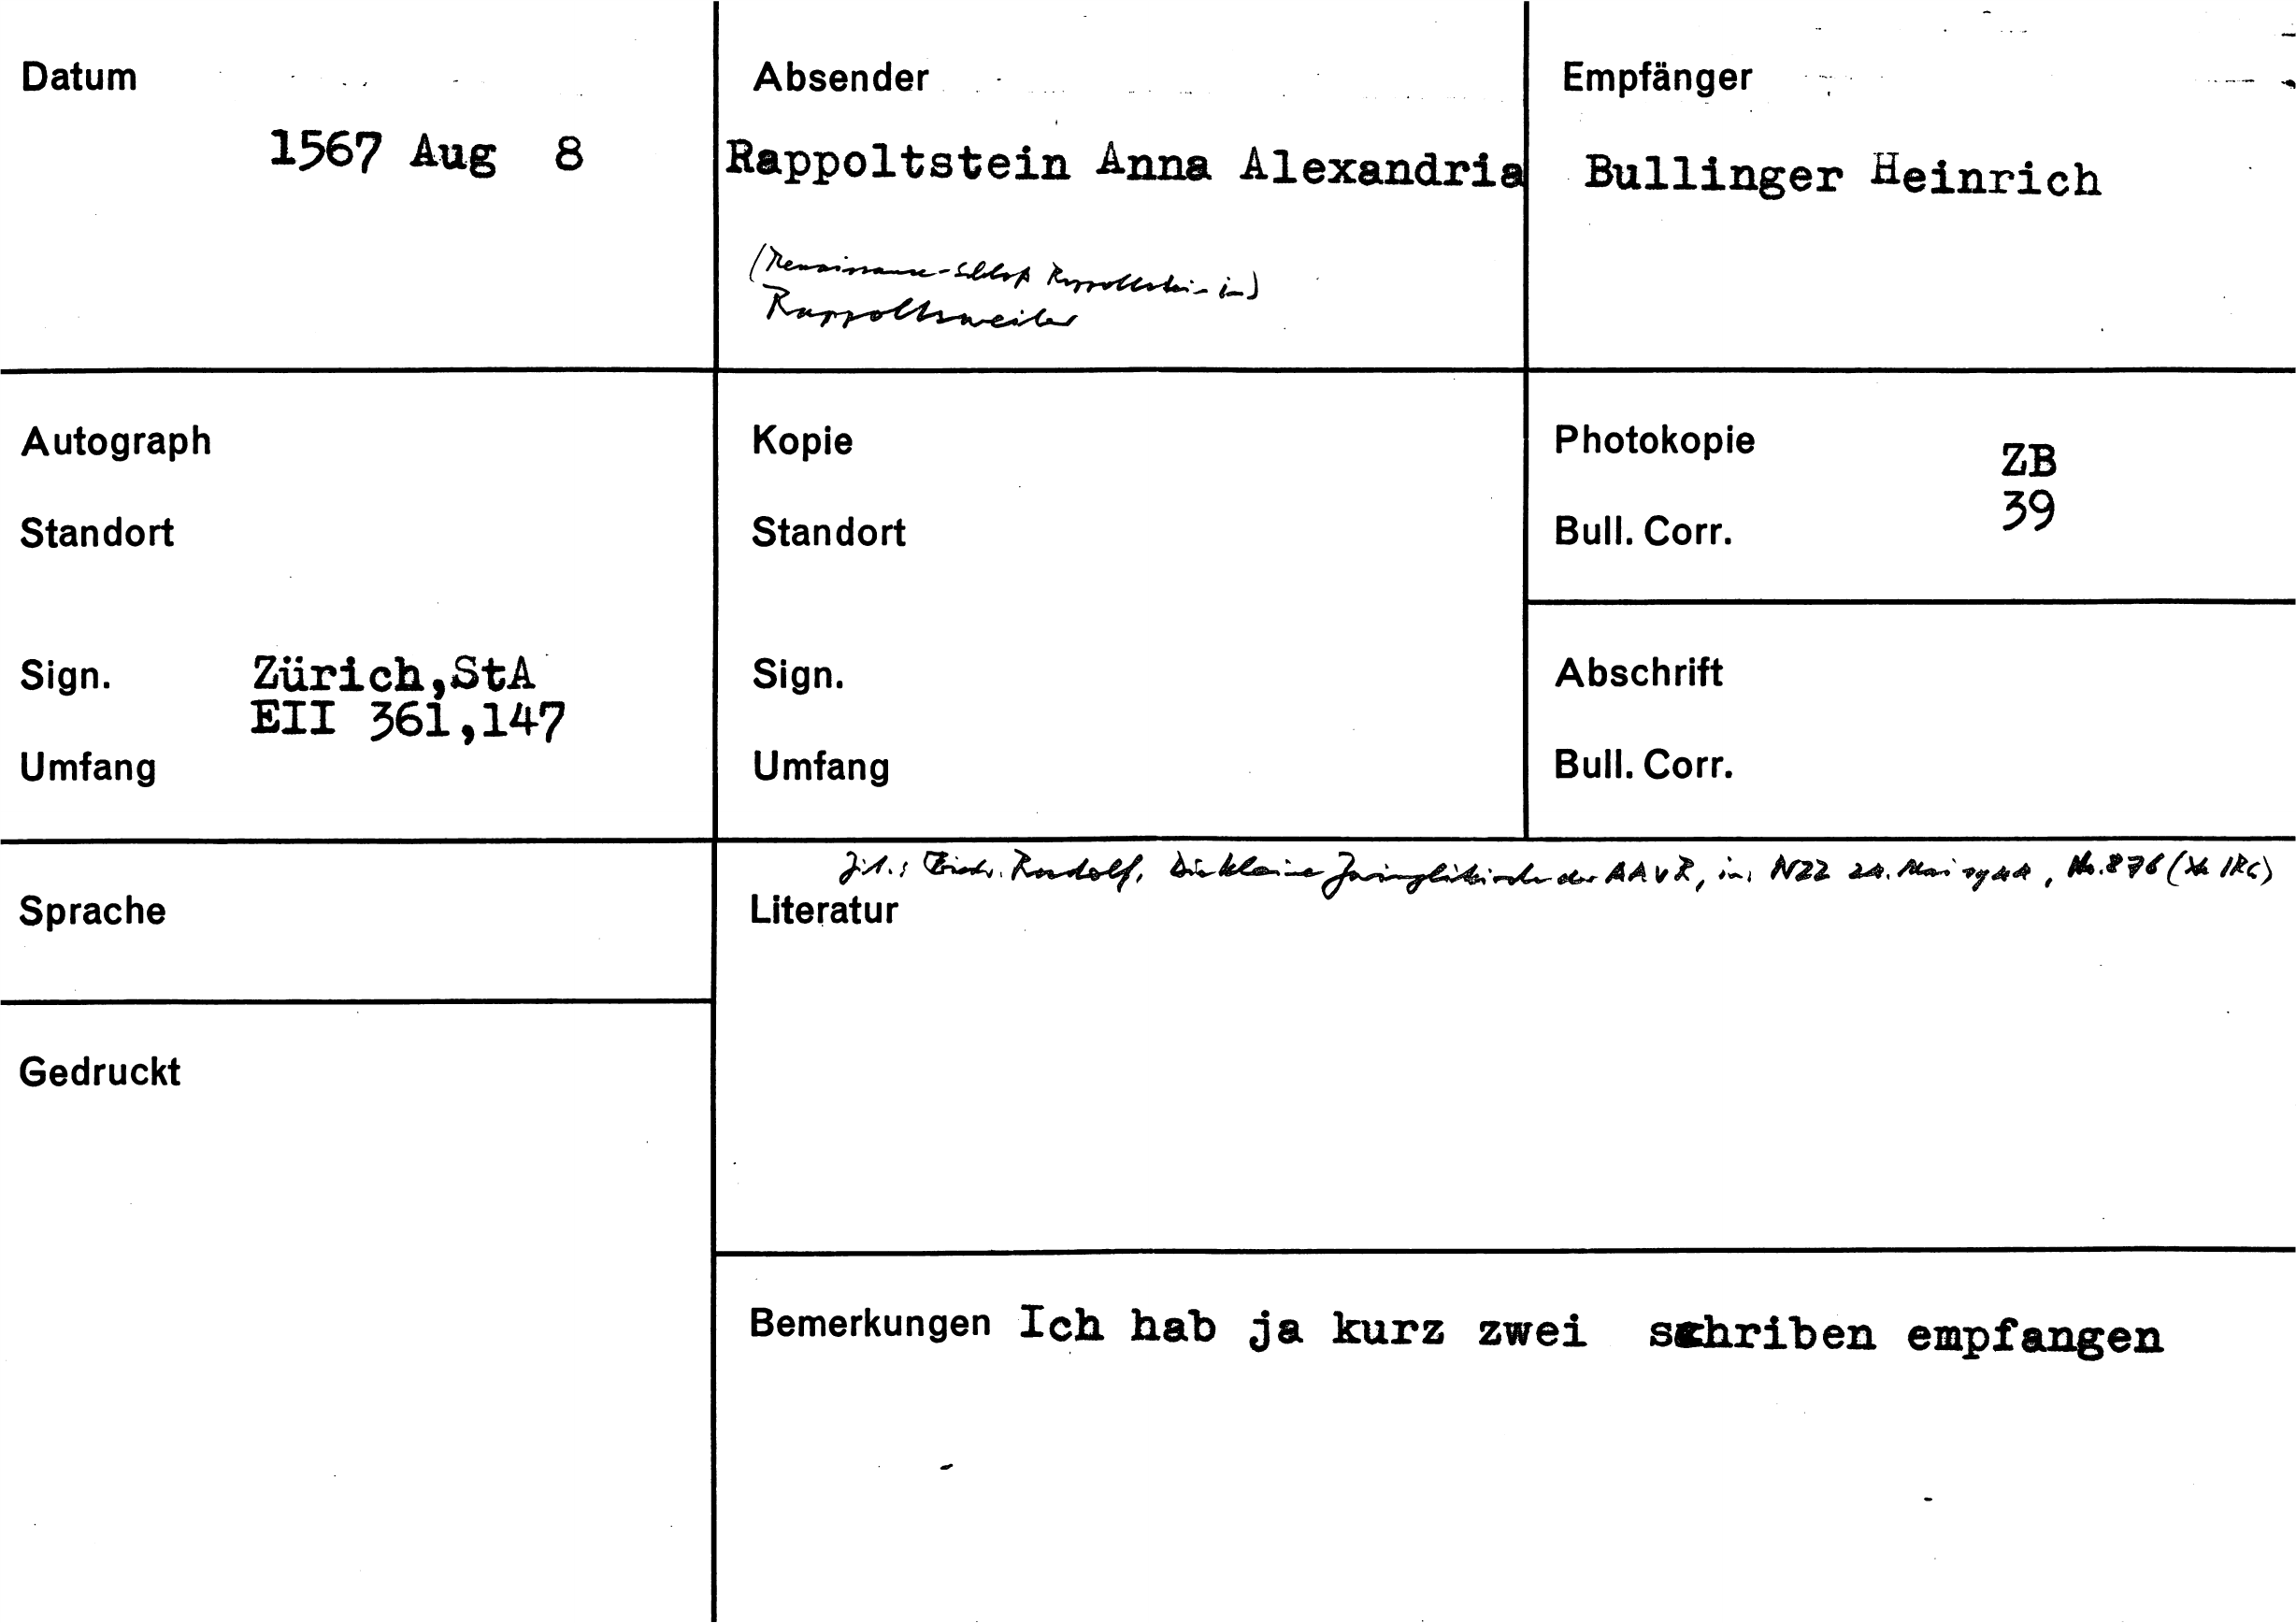 Datum
1567 Aug 8
Absender
Rappoltstein Anna Alexandria
(Renaissance-Schloß Rappoltstein in)
Rappoltsweiler
Empfänger
Bullinger Heinrich
Autograph
Standort
Sign. Zürich,StA
EII 361,147
Umfang
Kopie
Standort
Sign.
Umfang
Photokopie ZB
39
Bull. Corr.
Abschrift
Bull. Corr.
Sprache
Rudolf, Die kleine Zwinglikirche der AAvR, in: NZZ Mai No. 876
Literatur
Gedruckt
Bemerkungen Ich hab ja kurz zwei schriben empfangen